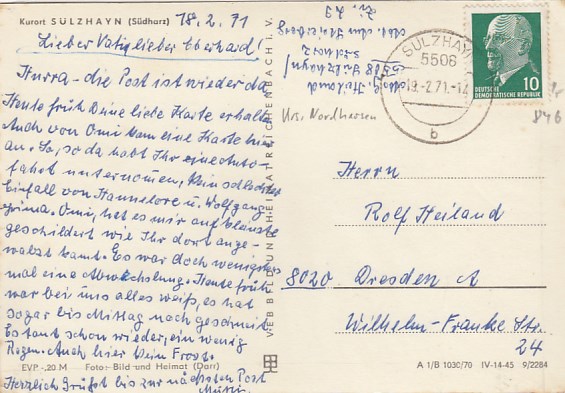 Kurort SÜLZHAYN (Südharz)
18.2.71
Lieber Vati, lieber Eberhard!
Hurra - die Post ist wieder da
Heute früh Deine liebe Karte erhalten
Auch von Omi kam eine Karte hier
an. So, so da habt Ihr eine Auto-
fahrt unternommen, kein schlechter
Einfall von Hannelore u. Wolfgang
prima. Omi, hat es mir auf's
geschildert wie Ihr dort ange-
walzt kamt. Es war doch wenigstens
mal eine Abwechslung. Heute früh
war bei uns alles weiß, es hat
sogar bis Mittag noch geschneit.
Es taut schon wieder, ein wenig
Regen. Auch hier kein Frost.
EVP -,20 M Foto: Bild und Heimat (Darr)
Herzlich Grüßt bis zur nächsten Post
Mutti
VEB BILD UND HEIMAT REICHENBACH I. V.
Abs. G. Heiland
5506 Sülzhayn/
Südharz
Zi. 29
Krs. Nordhausen
SÜLZHAYN
5506
19.-2.71.-12
b
10
DEUTSCHE
DEMOKRATISCHE REPUBLIK
846
Herrn
Rolf Heiland
8020 Dresden A
Wilhelm-Franke Str.
24
A 1/B 1030/70 IV-14-45 9/2284